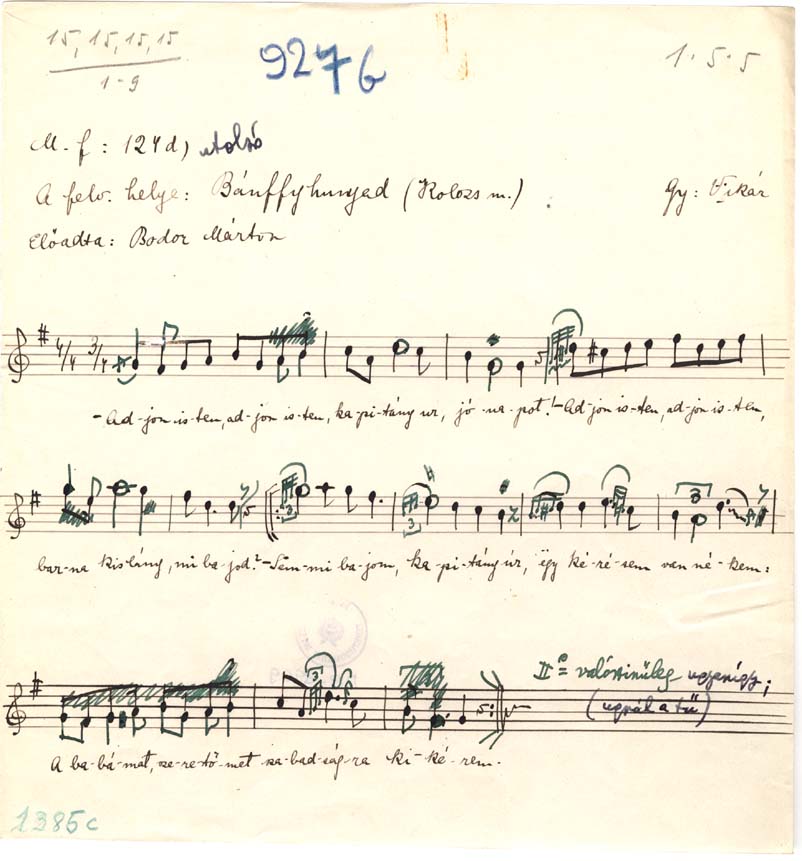 15, 15, 15, 15
1-9
927b
1 · 5 · 5
M. f : 124 d) utolsó
A felv. helye: Bánffyhunyad (Kolozs m.) Gy: Vikár
Előadta: Bodor Márton
4/4 3/4
-Ad-jon is-ten, ad-jon is-ten, ka-pi-tány ur, jó na-pot! -Ad-jon is-ten, ad-jon is-ten,
bar-na kis-lány, mi ba-jod? -Sem-mi ba-jom, ka-pi-tány úr, egy ké-ré-sem van né-kem:
II = valószinüleg ugyanígy;
(ugrál a tű)
A ba-bá-mat, sze-re-tő-met sza-bad-ság-ra ki-ké-rem.
1385c